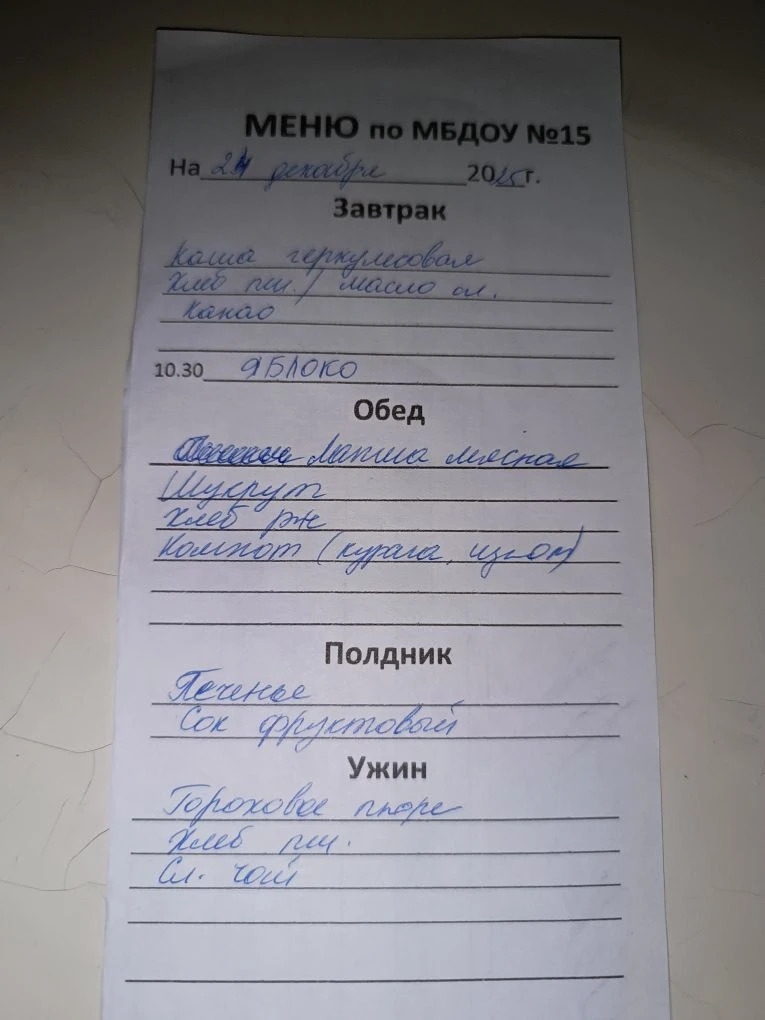 МЕНЮ по МБДОУ №15
На 24 декабря 2025г.
Завтрак
Каша геркулесовая
Хлеб пш./ масло сл.
Какао
10.30 ЯБЛОКО
Обед
Лапша мясная
Шукрут
Хлеб рж
Компот (курага, изюм)
Полдник
Печенье
Сок фруктовый
Ужин
Гороховое пюре
Хлеб пш.
Сл. чай